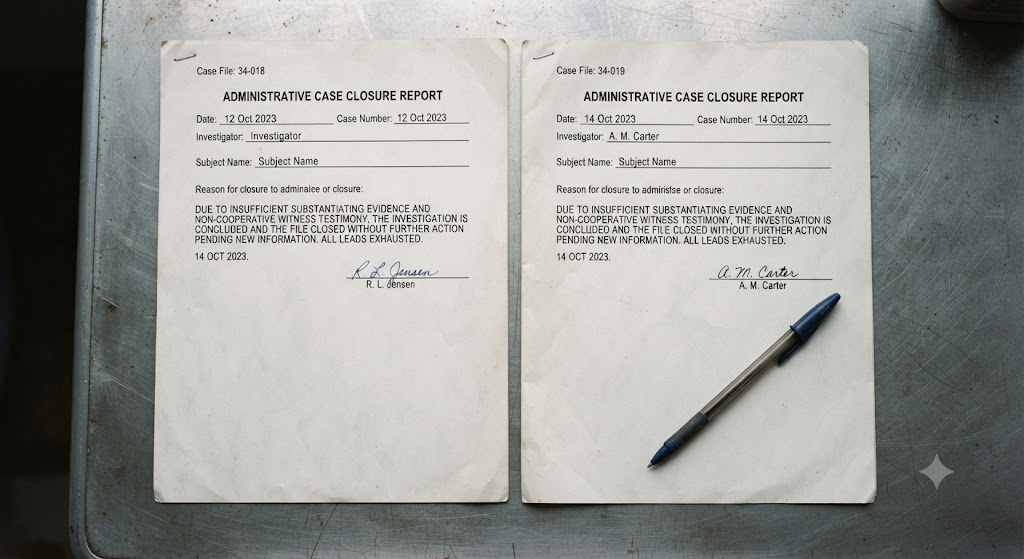 Case File: 34-018
ADMINISTRATIVE CASE CLOSURE REPORT
Date: 12 Oct 2023 Case Number: 12 Oct 2023
Investigator: Investigator
Subject Name: Subject Name
Reason for closure to adminaiee or closure:
DUE TO INSUFFICIENT SUBSTANTIATING EVIDENCE AND
NON-COOPERATIVE WITNESS TESTIMONY, THE INVESTIGATION IS
CONCLUDED AND THE FILE CLOSED WITHOUT FURTHER ACTION
PENDING NEW INFORMATION. ALL LEADS EXHAUSTED.
14 OCT 2023.
R. L. Jensen
R. L. Jensen
Case File: 34-019
ADMINISTRATIVE CASE CLOSURE REPORT
Date: 14 Oct 2023 Case Number: 14 Oct 2023
Investigator: A. M. Carter
Subject Name: Subject Name
Reason for closure to admirisfse or closure:
DUE TO INSUFFICIENT SUBSTANTIATING EVIDENCE AND
NON-COOPERATIVE WITNESS TESTIMONY, THE INVESTIGATION IS
CONCLUDED AND THE FILE CLOSED WITHOUT FURTHER ACTION
PENDING NEW INFORMATION. ALL LEADS EXHAUSTED.
14 OCT 2023.
A. M. Carter
A. M. Carter